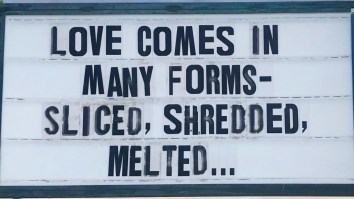 LOVE COMES IN
MANY FORMS-
SLICED, SHREDDED,
MELTED...